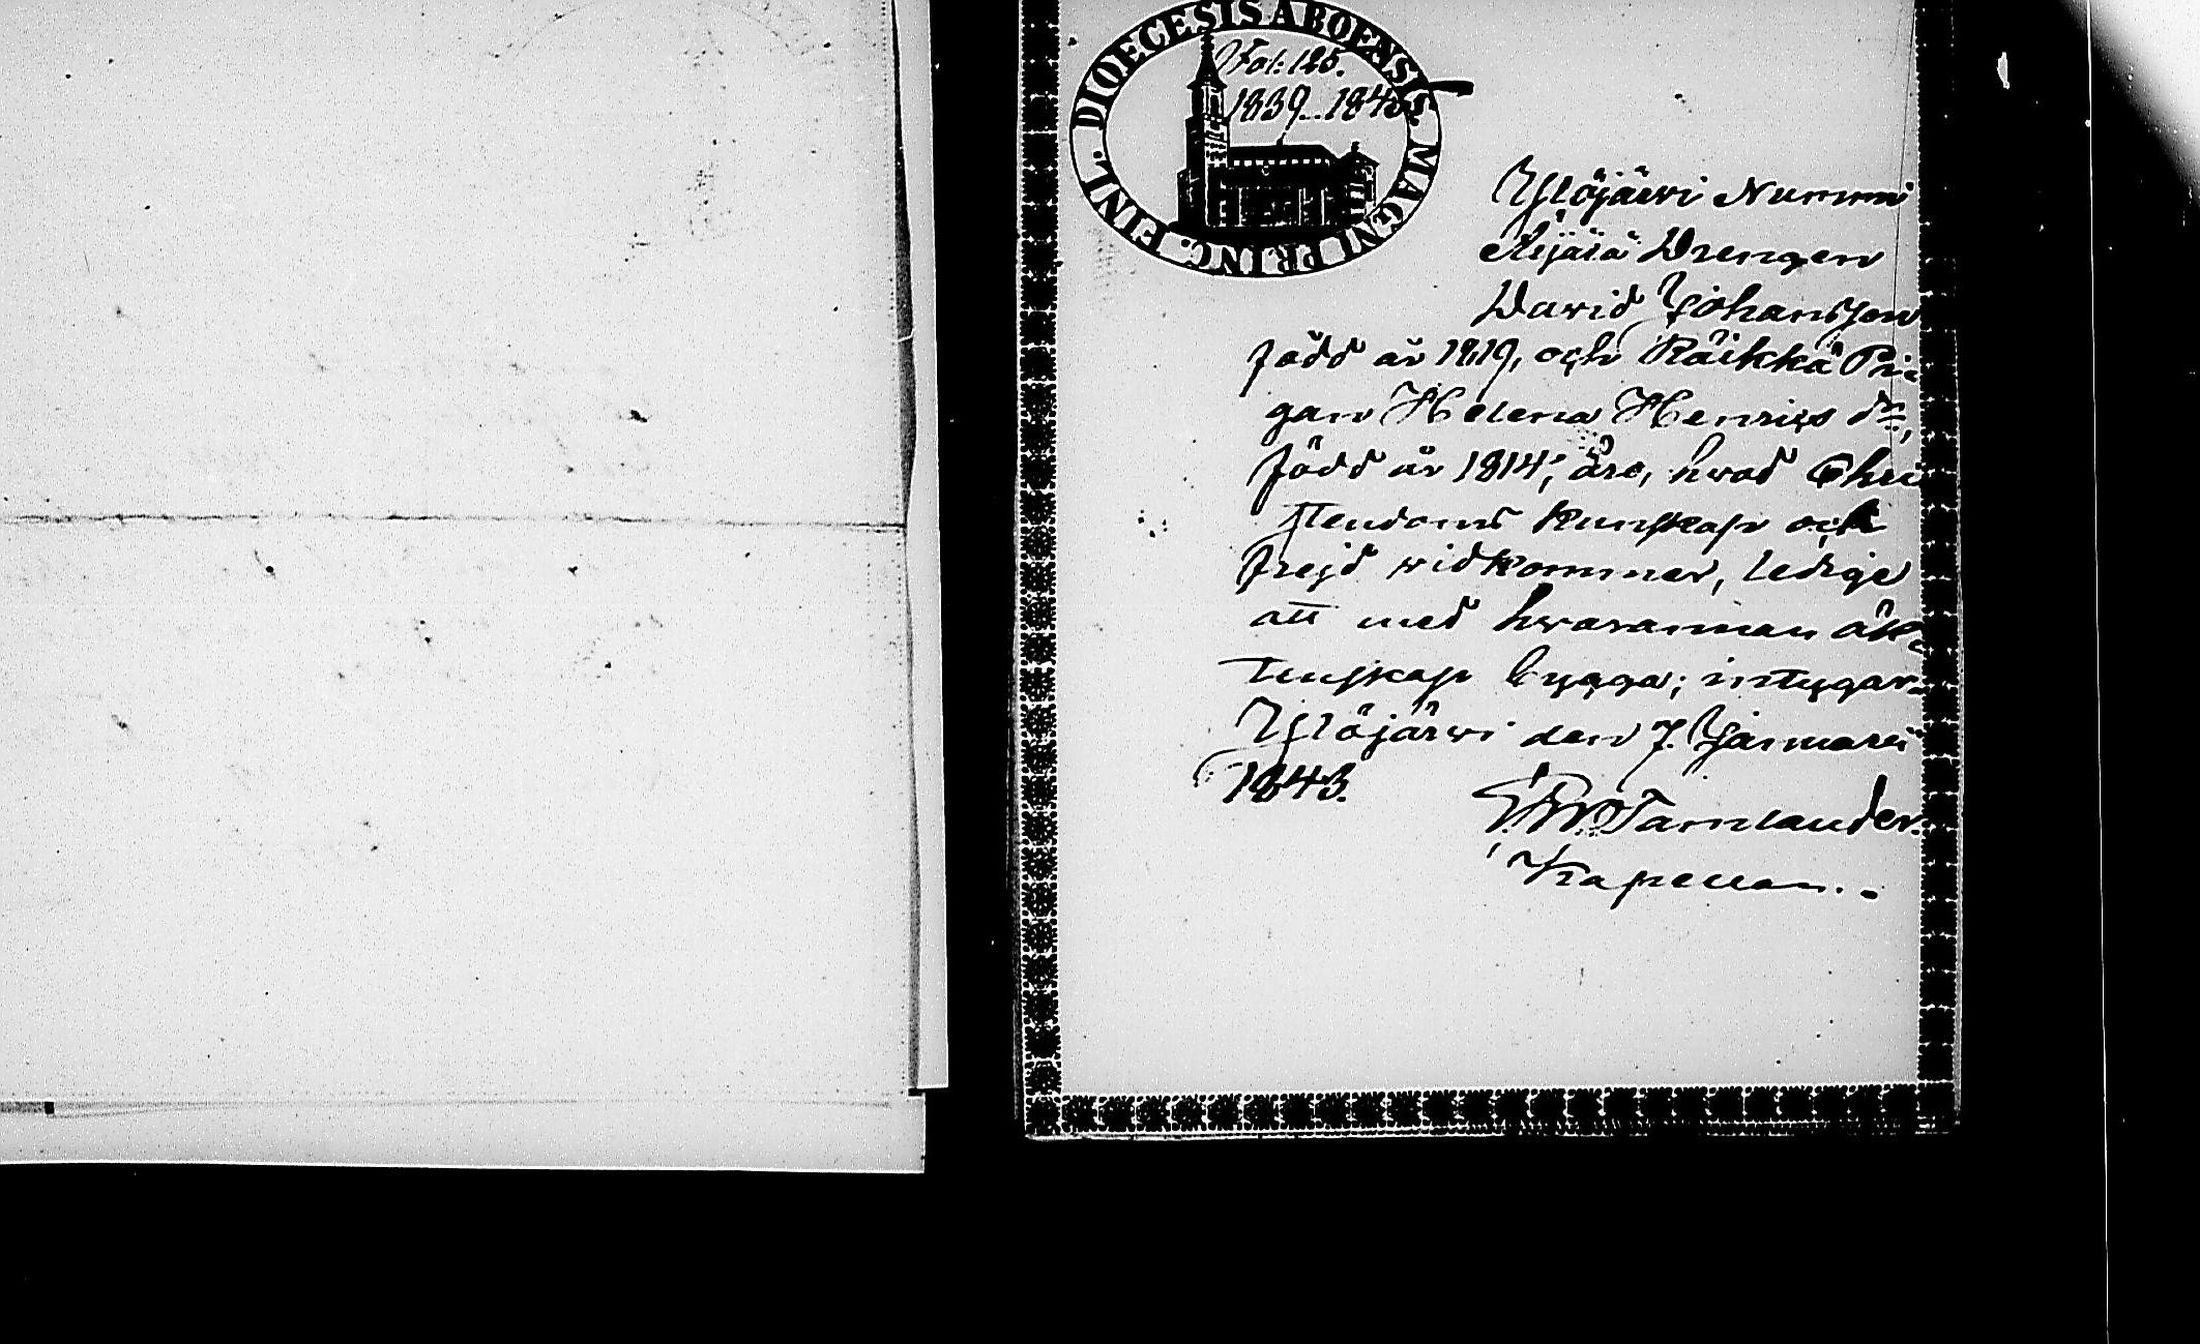 DIOECESIS ABOENSIS MAGNI PRINC. FINL.
Fol: 125.
1839_1845.
Ylöjärvi Nummi
Äijälä Drengen
David Johansson
född år 1819, och Räikkä Pi-
gan Helena Henrics dr,
född år 1814; äro, hvad Chri
stendoms kunskap och
frejd vidkommer, ledige
att med hvarannan äk-
tenskap bygga; intygar.
Ylöjärvi den 7. Januarii
1843.
Tamlander.
Kapellan.